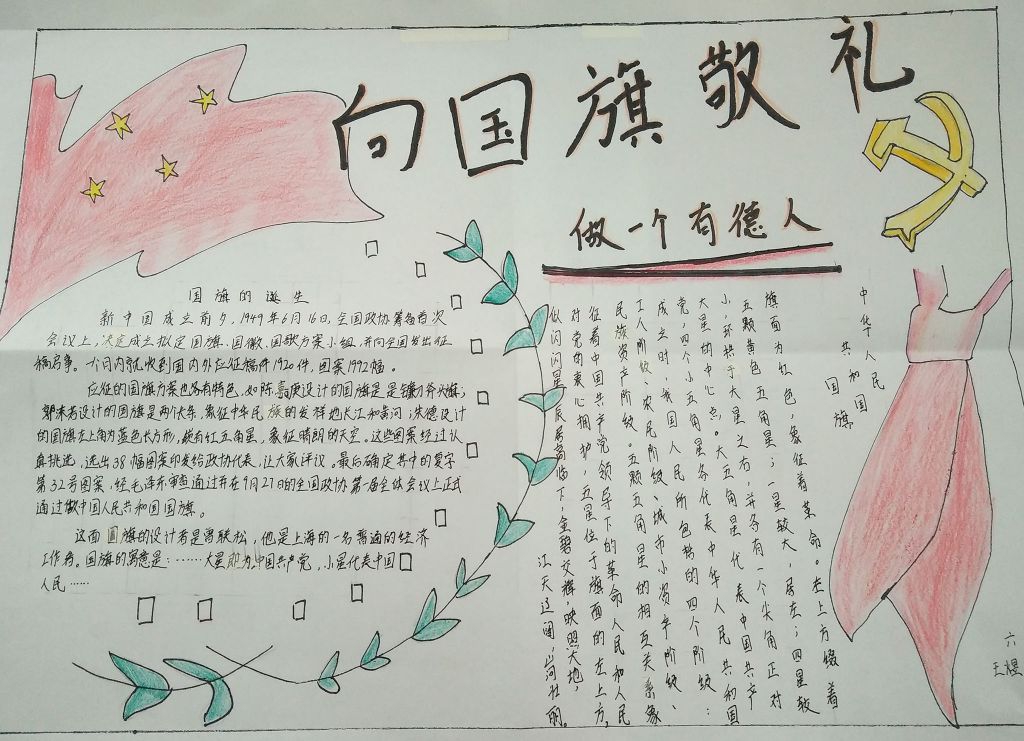 向国旗敬礼
做一个有德人
国旗的诞生
新中国成立前夕，1949年6月16日，全国政协筹备首次
会议上，决定成立拟定国旗、国徽、国歌方案小组，并向全国发出征
稿启事。一个月内就收到国内外应征稿件1920件，图案1992幅。
应征的国旗方案也各有特色，如陈嘉庚设计的国旗是是镰刀斧头旗；
郭沫若设计的国旗是两代车，象征中华民族的发祥地长江和黄河；朱德设计
的国旗左上角为蓝色长方形，嵌有红五角星，象征晴朗的天空。这些图案经过认
真挑选，选出38幅图案印发给政协代表，让大家评议。最后确定其中的复字
第32号图案，经毛泽东审查通过并在9月27日的全国政协第一届全体会议上正式
通过做中国人民共和国国旗。
这面国旗的设计者是曾联松，他是上海的一名普通的经济
工作者。国旗的寓意是：……大星即为中国共产党，小星代表中国
人民……
中华人民
共和国
国旗
旗面为红色，象征着革命。左上方缀着
五颗黄色五角星；一星较大，居左；四星较
小，环拱于大星之右，并各有一个尖角正对
大星的中心点。大五角星代表中国共产
党，四个小五角星各代表中华人民共和国
成立之时，我国人民所包带的四个阶级：
工人阶级、农民阶级、城市小资产阶级、
民族资产阶级。五颗五角星的相互关系象
征着中国共产党领导下的革命人民和人民
对党的衷心拥护，五星位于旗面的左上方，
似闪闪星辰居高临下，金碧交辉，映照大地，
江天辽阔，山河壮丽。
六
王煜